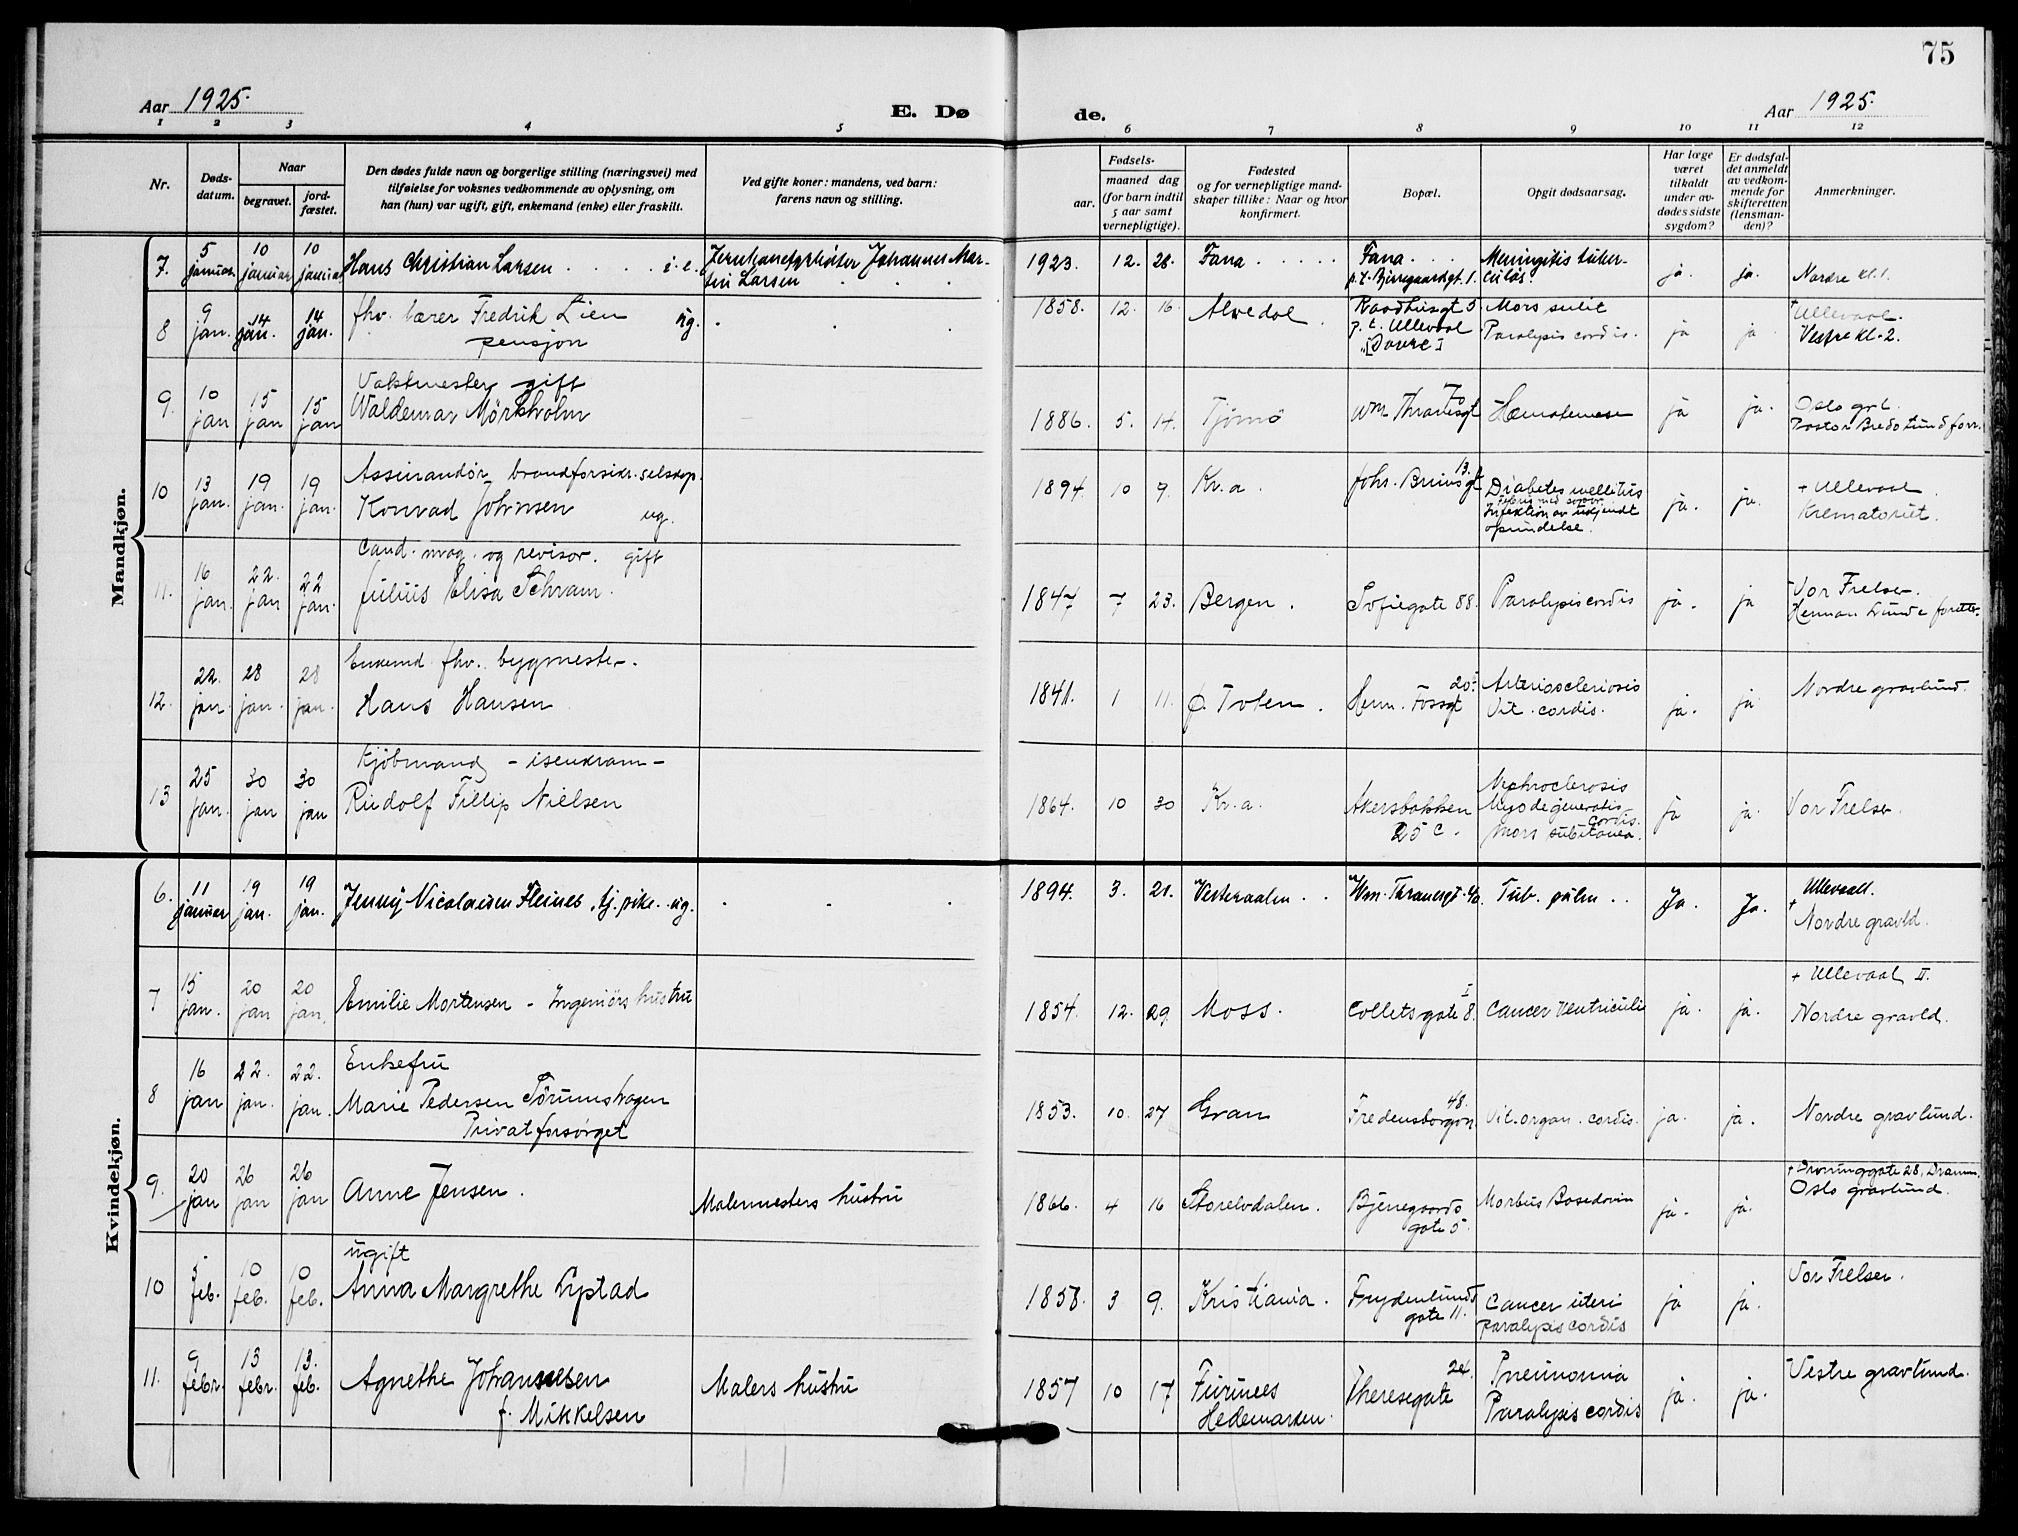 75
Aar 1925.
E. Dø
de.
Aar 1925.
1 2 3 4 5 6 7 8 9 10 11 12
Nr.
Døds-
datum.
Naar
begravet.
jord-
fæstet.
Den dødes fulde navn og borgerlige stilling (næringsvei) med
tilføielse for voksnes vedkommende av oplysning, om
han (hun) var ugift, gift, enkemand (enke) eller fraskilt.
Ved gifte koner: mandens, ved barn:
farens navn og stilling.
Fødsels-
aar.
maaned dag
(for barn indtil
5 aar samt
vernepligtige).
Fødested
og for vernepligtige mand-
skaper tillike: Naar og hvor
konfirmert.
Bopæl.
Opgit dødsaarsag.
Har læge
været
tilkaldt
under av-
dødes sidste
sygdom?
Er dødsfal-
det anmeldt
av vedkom-
mende for
skifteretten
(lensman-
den)?
Anmerkninger.
Mandkjøn.
7. 5 januar 10 januar 10 januar Hans Christian Larsen . . . . i.e. Johannes Mar-
tin Larsen
1923. 12. 28. Fana Fana
p.t. Bjerregaardsgt. 1.
Meningitis tuber-
culos.
ja. ja. Nordre kl. 1.
8 9 jan. 14 jan. 14 jan. fhv. lærer Fredrik Lien ug.
pensjon
1858. 12. 16. Alvedal Raadhusgt 5
p.t. Ullevaal
"Dovre"
Mors subit
Paralysis cordis.
ja ja + Ullevaal.
Vestre kl. 2.
9. 10 jan 15 jan 15 jan Vaktmester gift
Waldemar Mörkholm
1886. 5. 14. Tjömö Wm Thranesgt Hæmatemese ja ja. Oslo grl.
Pastor Bredo Lund forr.
10 13 jan. 19 jan. 19 jan. Assurandör brandforsikr. selskap
Konrad Johnsen ug.
1894. 10 9. Kr.a. 13.
Johs. Brunsgt
Diabetes mellitus
Infektion av ukjendt
oprindelse.
ja. ja. + Ullevaal
Krematoriet.
11. 16 jan. 22. jan 22 jan. Cand. mag. og revisor. gift
Julius Elisa Schram.
1847 7 23. Bergen. Sofiegate 88. Paralysis cordis ja. ja Vor Frelser.
Herman Lunde forretter.
12. 22. jan. 28 jan. 28 jan. Enkemd. fhv. bygmester.
Hans Hansen
1841. 1 11. Ø. Toten. 20 I
Herm. Fossgt
Arteriosclerosis
Vit. cordis.
ja. ja Nordre gravlund.
13 25 jan. 30 jan 30 jan Kjöbmand – isenkram –
Rudolf Fillip Nielsen
1864. 10 30 Kr.a. Akersbakken
25 c.
Nephroclerosis
Myodegeneratis
cordis.
Mors subitanea.
ja ja. Vor Frelser.
Kvindekjøn.
6. 11 januar 19 jan. 19 jan. Jenny Nicolaisen Fleines, tj. pike. ug.
1894. 3. 21. Vesteraalen . . Wm. Thranesgt. Tub. pulm . . Ja. Ja. Ullevaal.
+ Nordre gravld.
7 15 jan. 20 jan 20 jan. Emilie Mortensen – Ingeniörs hustru
1854. 12. 29. Moss. I
Colletsgate 8.
Cancer Ventriculi ja. ja. + Ullevaal II.
Nordre gravld.
8 16 jan 22. jan. 22. jan. Enkefru
Marie Pedersen Törumshagen
Privat forsörget
1853. 10. 27 Gran 48.
Fredensborgvn.
Vit. organ. cordis. ja. ja. Nordre gravlund.
9. 20 jan 26 jan 26 jan Anne Jensen. Malermesters hustru
1866. 4 16 Storelvdalen. Bjerregaards
gate 5.
Morbus Basedovin ja. ja. + Dronninggate 28, Dramm.
Oslo gravlund.
10 5 feb. 10 feb. 10 feb. ugift
Anna Margrethe Lystad
1858. 3 9. Kristiania. Frydenlunds
gate 11.
Cancer uteri
Paralysis cordis
ja ja. Vor Frelser.
11. 9 febr. 13 febr. 13. feb. Agnethe Johannesen
f. Mikkelsen
Malers hustru
1857 10 17 Furunes
Hedemarken.
24.
Theresegate
Pneumonia
Paralysis cordis
ja. ja. Vestre gravlund.